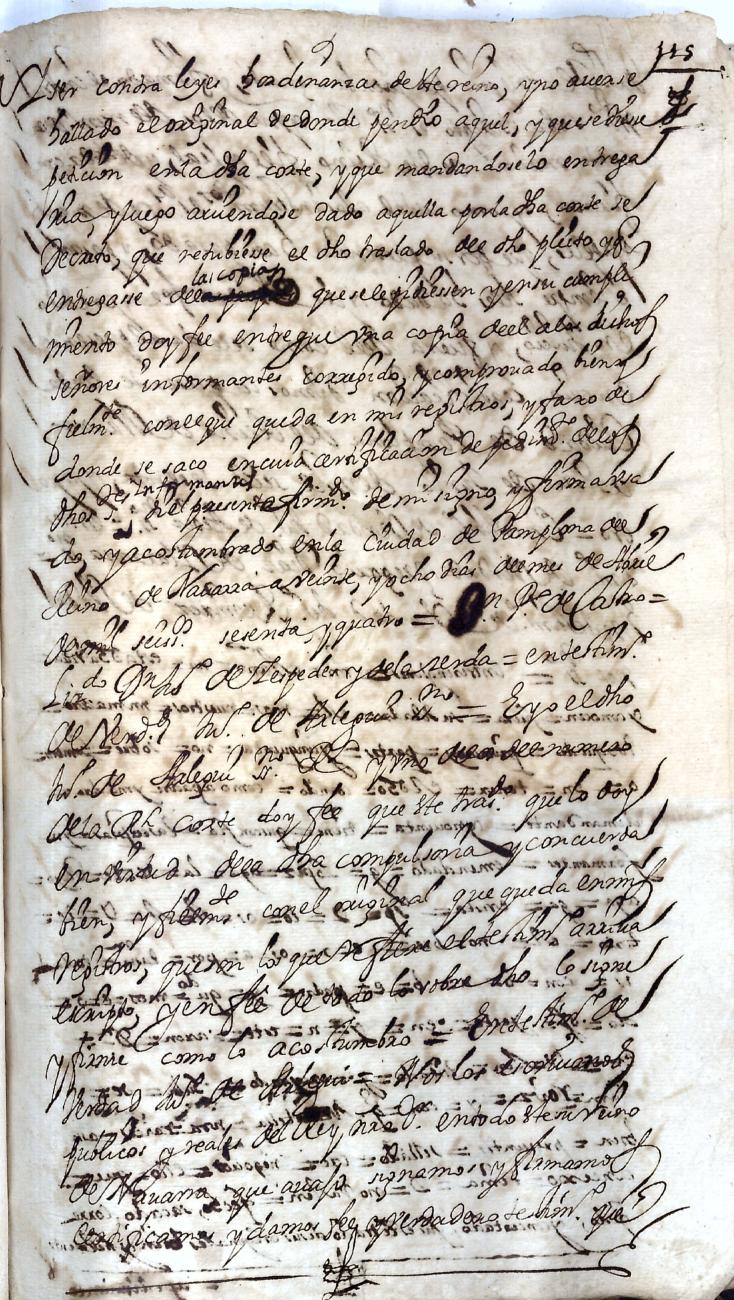 115
ser contra leyes hordenanzas deste reino, y no averse
hallado el original de donde pendio aquel, y que se diesse
peticion en la dha corte, y que mandandoselo entrega
ria, y luego aviendose dado aquella por la dha corte se
Decreto, que retubiesse el dho traslado del dho pleito y
las copias
entregasse que se le pidiessen y en su cumpli
miento doy fee entregue una copia del a los dichos
señores informantes corregido, y comprovado bien y
fielmte. con el que queda en mis registros, y saxo de
donde se saco en cuia certificacion de pedimto. de los
señores Informantes
dhos di el presente firmdo. de mi signo, y firma ussa
do, y acostumbrado en la Ciudad de Pamplona del
Reino de Navarra a veinte, y ocho dias del mes de Abril
de mil seiss. sesenta, y quatro = Dn. Po. de Castro =
Lizdo Dn. de Zespedes y de la verda = en testimo.
de Verdd. de Arlegui = E yo el dho
de Arlegui y uno del numero
de la Rl. corte doy fee que este tras.do que lo doy
en virtud de la dha compulsoria y concuerda
bien, y fielmte con el original que queda en mis
registros, que son los que refiere el testimo. arriva
escripto, y en fee de todo lo sobre dho lo signe
y firme como lo acostumbro = En testimo. de
Verdad de Arlegui = Nos los escrivanos
publicos y reales del Rey nro Sr. en todo este su reino
de Navarra, que avajo signamos y firmamos
Certificamos, y damos fee, y verdadero testimo. que